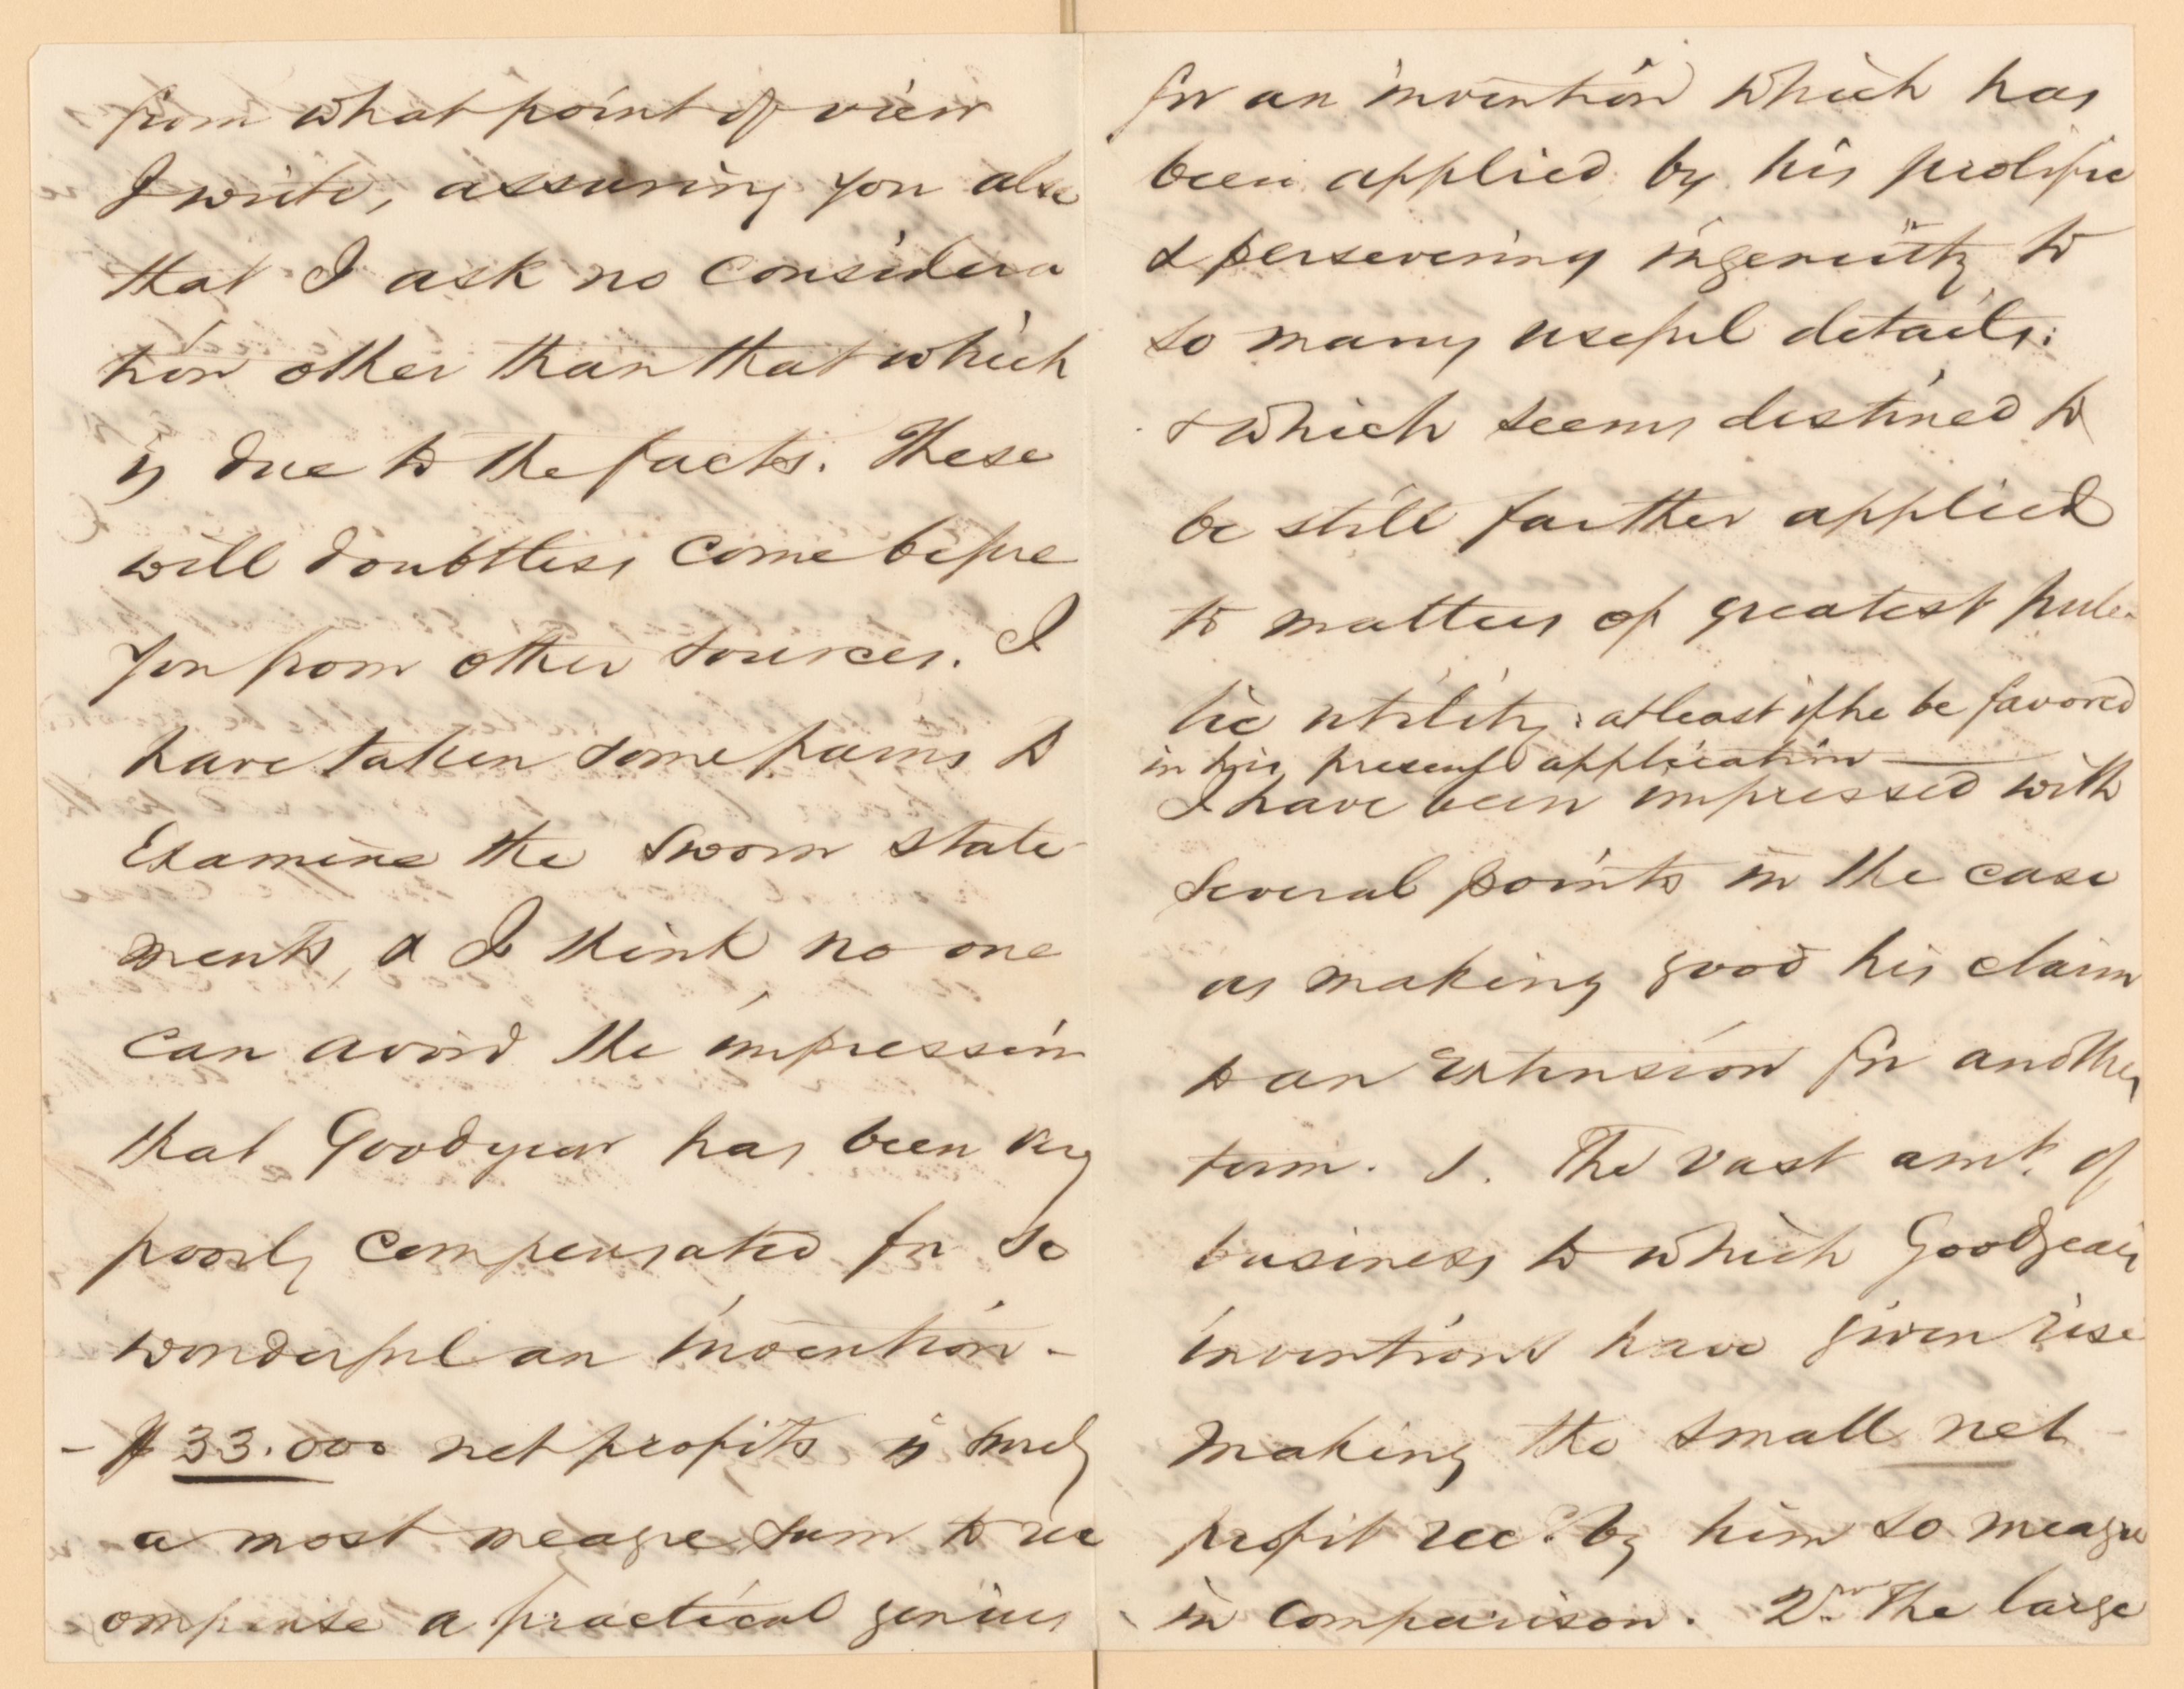 from what point of view
I write, assuring you also
that I ask no considera
tion other than that which
is due to the facts. These
will doubtless come before
you from other sources. I
have taken some pains to
examine the sworn state
ments, & I think no one
can avoid the impression
that Goodyear has been very
poorly compensated for so
wonderful an invention -
- $33.000 net profits is surely
a most meagre sum to rec
ompense a practical genius
for an invention which has
been applied by his prolific
& persevering ingenuity to
so many useful details:
& which seems destined to
be still farther applied
to matters of greatest pub-
lic utility: at least if he be favored
in his present application —
I have been impressed with
several points in the case
as making good his claim
to an extension for another
term. 1. The vast amt. of
business to which Goodyear's
inventions have given rise
making the small net
profit recd. by him so meagre
in comparison. 2nd The large